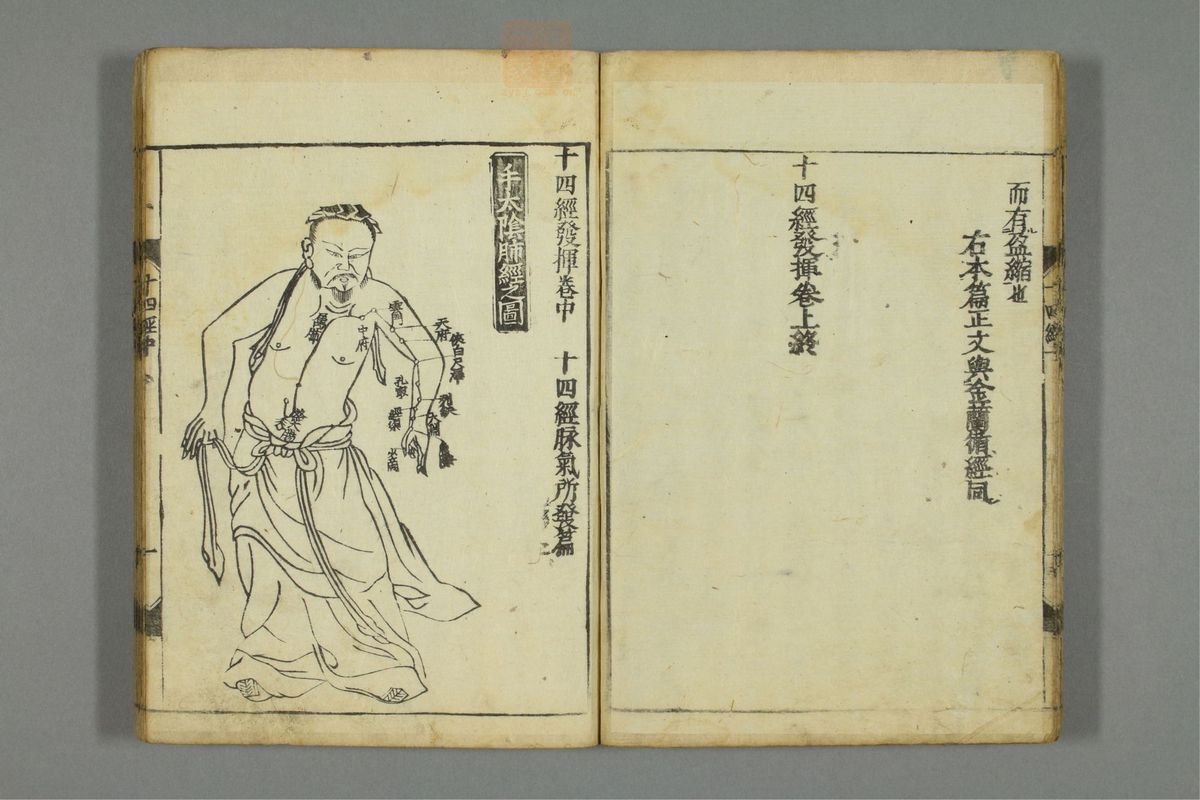 而有盈縮也
右本篇正文與金蘭循經同
十四經發揮卷上終
十四經
十四經發揮卷中 十四經脉氣所發篇
手太陰肺經之圖
雲門
中府
天府
俠白尺澤
孔最
列缺
經渠
少商
十四經中
一